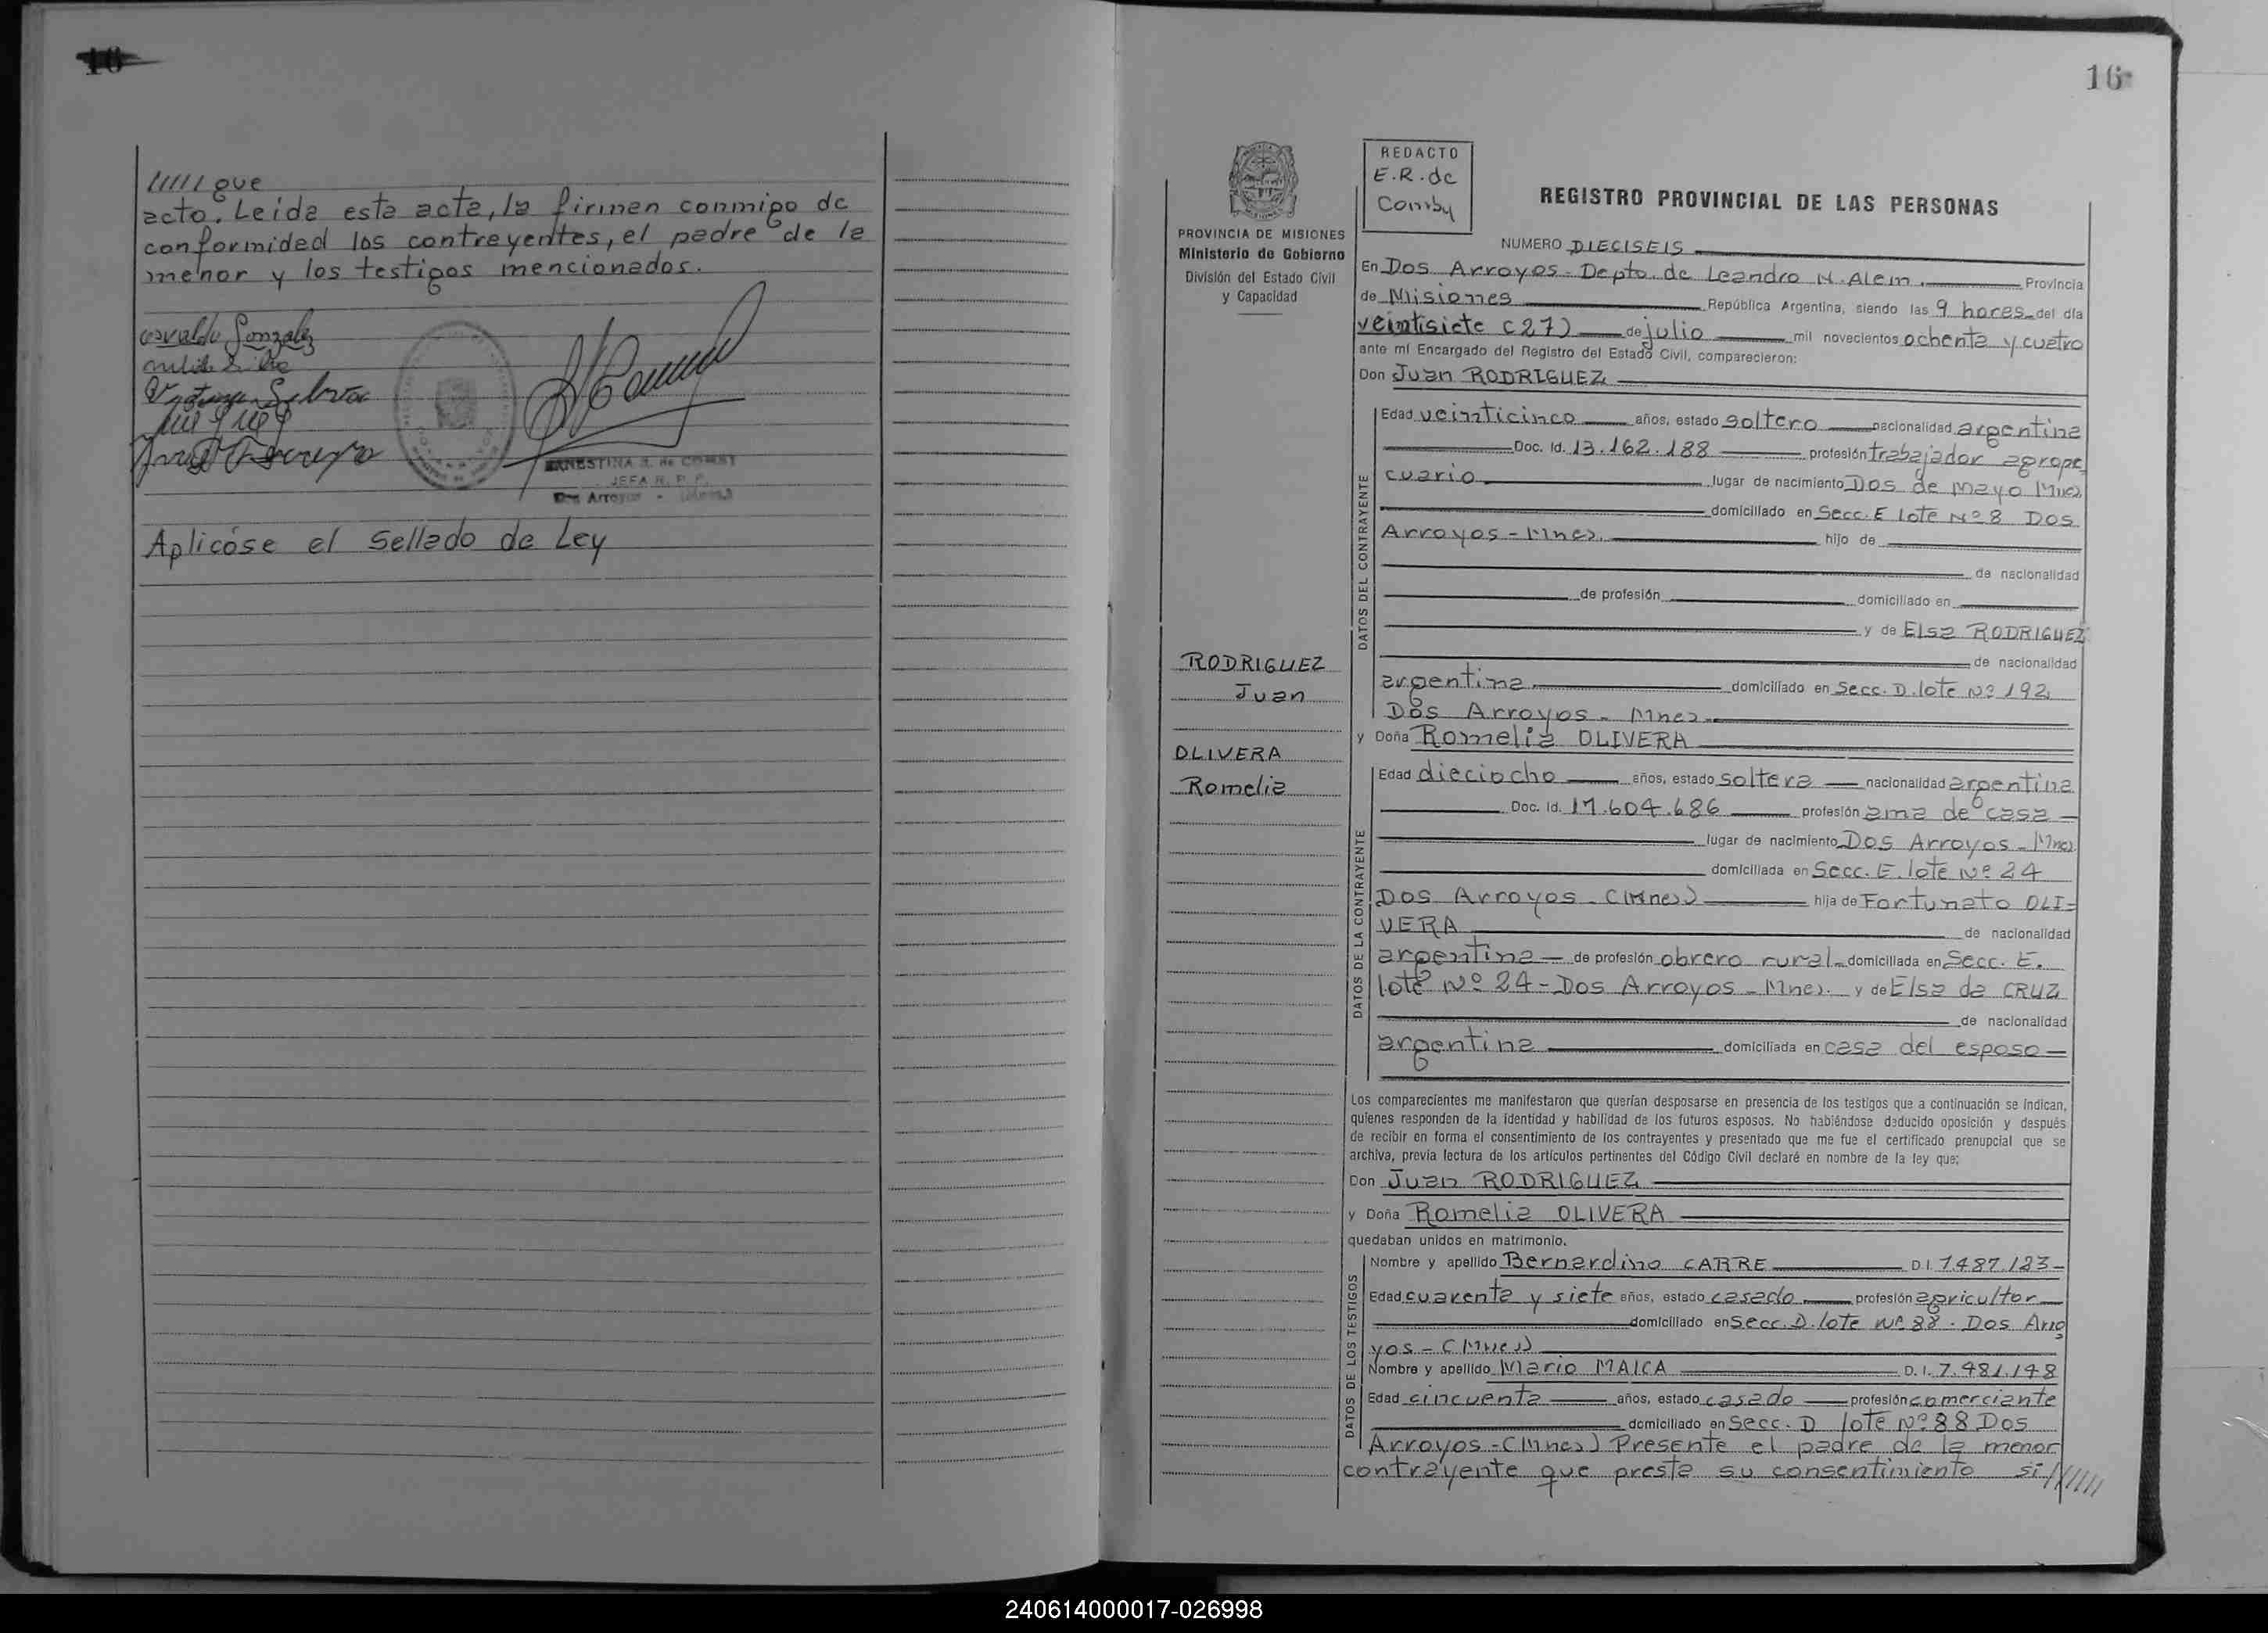 16
///// que
acto. Leida esta acta, la firman conmigo de
conformidad los contrayentes, el padre de la
menor y los testigos mencionados.
osvaldo Gonzalez
ERNESTINA R. de COMBY
JEFA R. P. P.
Dos Arroyos -
Aplicóse el Sellado de Ley
16
PROVINCIA DE MISIONES
Ministerio de Gobierno
División del Estado Civil
y Capacidad
REDACTO
E.R. de
Comby
REGISTRO PROVINCIAL DE LAS PERSONAS
NUMERO DIECISEIS
En Dos Arroyos - Depto. de Leandro N. Alem. Provincia
de Misiones República Argentina, siendo las 9 horas del día
veintisiete (27) de julio mil novecientos ochenta y cuatro
ante mí Encargado del Registro del Estado Civil, comparecieron:
Don Juan RODRIGUEZ
DATOS DEL CONTRAYENTE
Edad veinticinco años, estado soltero nacionalidad argentina
Doc. Id. 13.162.188 profesión trabajador agrope
cuario. lugar de nacimiento Dos de Mayo Mnes
domiciliado en Secc. E lote Nº 8 Dos
Arroyos - Mnes. hijo de
de nacionalidad
de profesión domiciliado en
y de Elsa RODRIGUEZ
de nacionalidad
argentina domiciliado en Secc. D. lote Nº 192,
Dos Arroyos - Mnes.
RODRIGUEZ
Juan
OLIVERA
Romelia
y Doña Romelia OLIVERA
DATOS DE LA CONTRAYENTE
Edad dieciocho años, estado soltera nacionalidad argentina
Doc. Id. 17.604.686 profesión ama de casa
lugar de nacimiento Dos Arroyos - Mnes
domiciliada en Secc. E. lote Nº 24
Dos Arroyos - (Mnes) hija de Fortunato OLI=
VERA de nacionalidad
argentina de profesión obrero rural domiciliada en Secc. E.
lote Nº 24 - Dos Arroyos - Mnes. y de Elsa da CRUZ
de nacionalidad
argentina domiciliada en casa del esposo
Los comparecientes me manifestaron que querían desposarse en presencia de los testigos que a continuación se indican,
quienes responden de la identidad y habilidad de los futuros esposos. No habiéndose deducido oposición y después
de recibir en forma el consentimiento de los contrayentes y presentado que me fue el certificado prenupcial que se
archiva, previa lectura de los artículos pertinentes del Código Civil declaré en nombre de la ley que:
Don Juan RODRIGUEZ
y Doña Romelia OLIVERA
quedaban unidos en matrimonio.
DATOS DE LOS TESTIGOS
Nombre y apellido Bernardino CARRE D I. 7.487.123
Edad cuarenta y siete años, estado casado profesión agricultor
domiciliado en Secc. D. lote Nº 88 - Dos Arro
yos - (Mnes)
Nombre y apellido Mario MAICA D. I. 7.481.148
Edad cincuenta años, estado casado profesión comerciante
domiciliado en Secc. D lote Nº 88 Dos
Arroyos - (Mnes) Presente el padre de la menor
contrayente que presta su consentimiento si//////
240614000017-026998